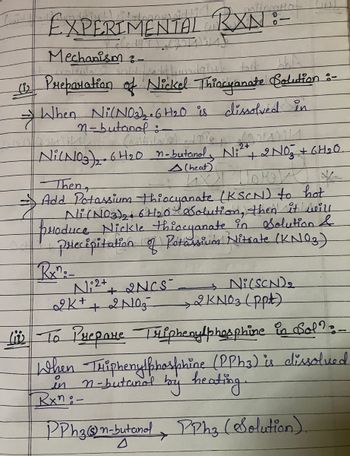 EXPERIMENTAL RXN :-
Mechanism :-
(i) Preparation of Nickel Thiocyanate Solution :-
⇒ When Ni(NO3)2.6H2O is dissolved in
n-butanol :-
Ni(NO3)2.6H2O n-butanol→ Ni2+ + 2NO3- + 6H2O
Δ(heat)
Then,
⇒ Add Potassium thiocyanate (KSCN) to hot
Ni(NO3)2.6H2O solution, then it will
produce Nickle thiocyanate in solution &
precipitation of Potassium Nitrate (KNO3)
Rxn:-
Ni2+ + 2NCS- → Ni(SCN)2
2K+ + 2NO3- → 2KNO3 (ppt)
(ii) To Prepare Triphenylphosphine in Soln :-
When Triphenylphosphine (PPh3) is dissolved
in n-butanol by heating.
Rxn :-
PPh3(s) n-butanol→ PPh3 (Solution).
Δ